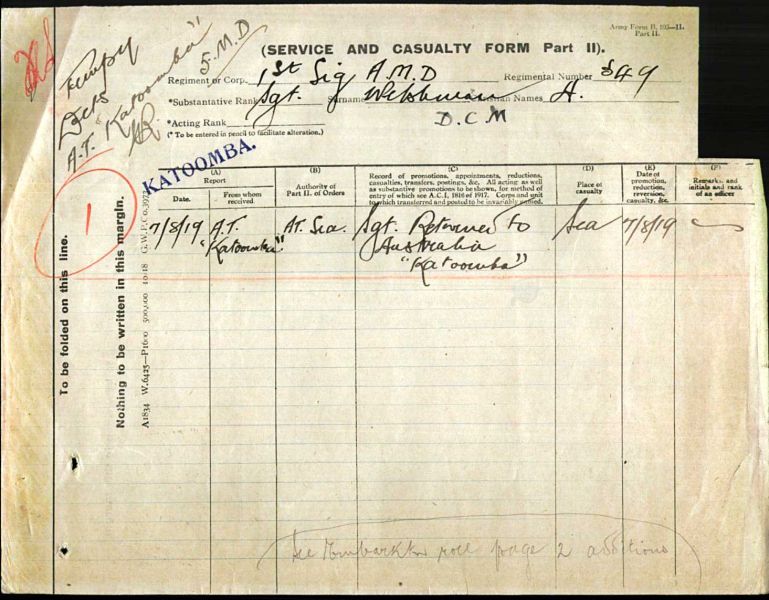 Army Form B. 103—II.
Part II.
A.T. Katoomba"
5.M.D
(SERVICE AND CASUALTY FORM Part II).
Regiment or Corps 1st Sig A.M.D Regimental Number 549
*Substantive Rank Sgt. Surname Welshman Christian Names A.
*Acting Rank D.C.M
(* To be entered in pencil to facilitate alteration.)
KATOOMBA.
1
To be folded on this line.
Nothing to be written in this margin.
A1834 W.6425—P1600 500,000 10/18 G.W.P.Co. 3972
(A)
Report
Date.
From whom received.
(B)
Authority of Part II. of Orders
(C)
Record of promotions, appointments, reductions,
casualties, transfers, postings, &c. All acting as well
as substantive promotions to be shown, for method of
entry of which see A.C.I. 1816 of 1917. Corps and unit
to which transferred and posted to be invariably named.
(D)
Place of casualty
(E)
Date of promotion, reduction, reversion, casualty, &c.
(F)
Remarks and initials and rank of an officer
7/8/19 A.T. At Sea. Sgt. Returned to Sea 7/8/19
"Katoomba" Australia
"Katoomba"
See Embarktn roll page 2 additions